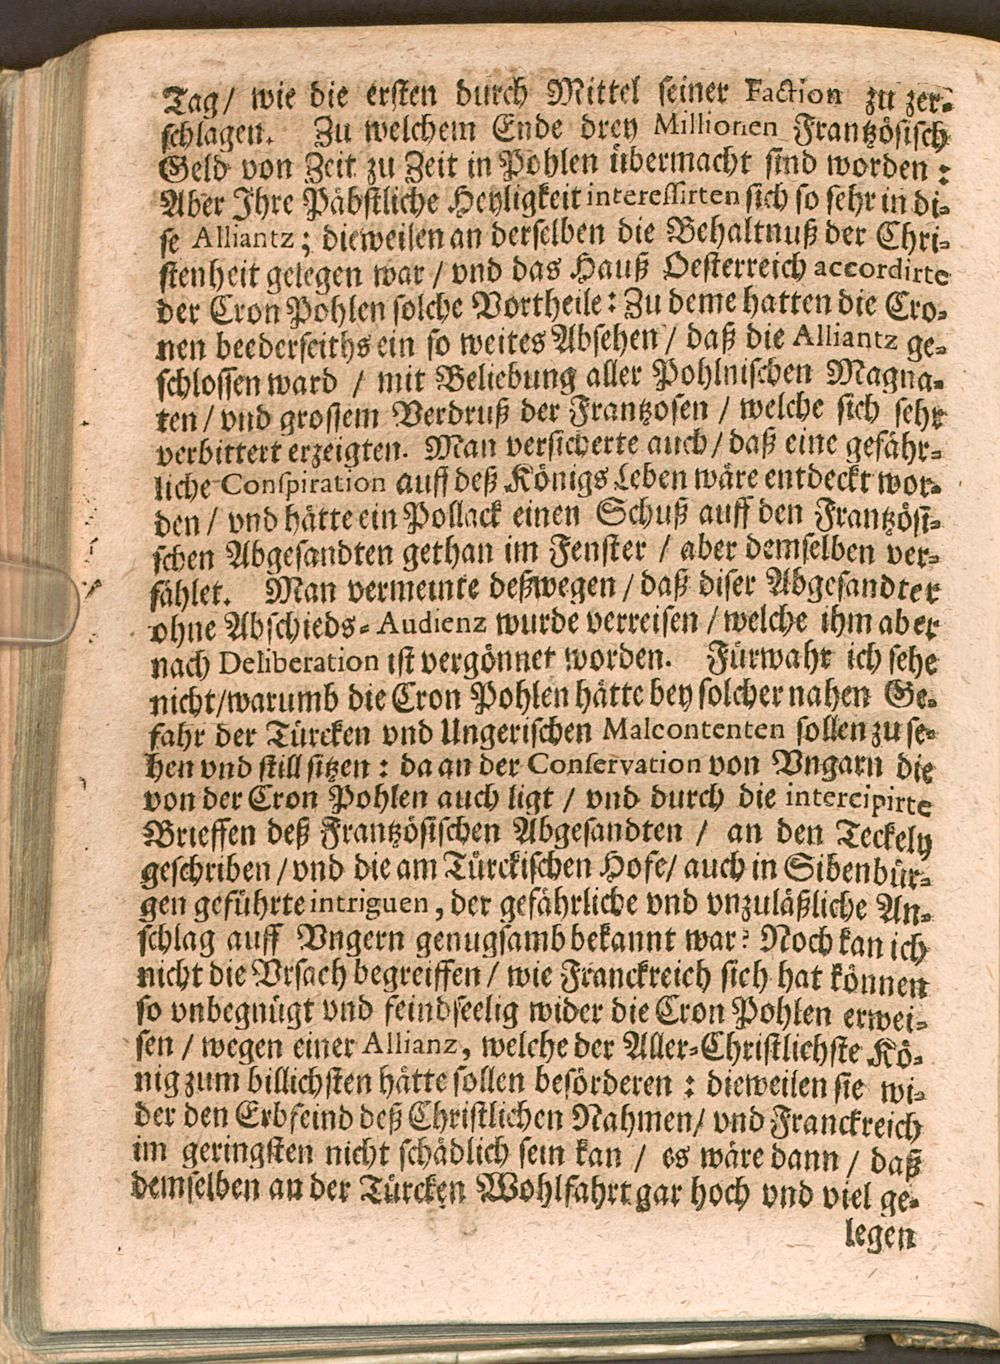 Tag/ wie die ersten durch Mittel seiner Faction zu zer-
schlagen. Zu welchem Ende drey Millionen Frantzösisch
Geld von Zeit zu Zeit in Pohlen übermacht sind worden :
Aber Ihre Päbstliche Heyligkeit interessirten sich so sehr in di-
se Alliantz ; dieweilen an derselben die Behaltnuß der Chri-
stenheit gelegen war / vnd das Hauß Oesterreich accordirte
der Cron Pohlen solche Vortheile : Zu deme hatten die Cro-
nen beederseiths ein so weites Absehen / daß die Alliantz ge-
schlossen ward / mit Beliebung aller Pohlnischen Magna-
ten / vnd grossem Verdruß der Frantzosen / welche sich sehr
verbittert erzeigten. Man versicherte auch / daß eine gefähr-
liche Conspiration auff deß Königs Leben wäre entdeckt wor-
den / vnd hätte ein Pollack einen Schuß auff den Frantzösi-
schen Abgesandten gethan im Fenster / aber demselben ver-
fählet. Man vermeinte deßwegen / daß diser Abgesandter
ohne Abschieds-Audienz wurde verreisen / welche ihm aber
nach Deliberation ist vergönnet worden. Fürwahr ich sehe
nicht/warumb die Cron Pohlen hätte bey solcher nahen Ge-
fahr der Türcken vnd Ungerischen Malcontenten sollen zu se-
hen vnd still sitzen : da an der Conservation von Vngarn die
von der Cron Pohlen auch ligt / vnd durch die intercipirte
Brieffen deß Frantzösischen Abgesandten / an den Teckely
geschriben / vnd die am Türckischen Hofe/ auch in Sibenbür-
gen geführte intriguen, der gefährliche vnd vnzuläßliche An-
schlag auff Vngern genugsamb bekannt war : Noch kan ich
nicht die Vrsach begreiffen / wie Franckreich sich hat können
so vnbegnügt vnd feindseelig wider die Cron Pohlen erwei-
sen / wegen einer Allianz, welche der Aller-Christlichste Kö-
nig zum billichsten hätte sollen beförderen : dieweilen sie wi-
der den Erbfeind deß Christlichen Nahmen/ vnd Franckreich
im geringsten nicht schädlich sein kan / es wäre dann / daß
demselben an der Türcken Wohlfahrt gar hoch vnd viel ge-
legen